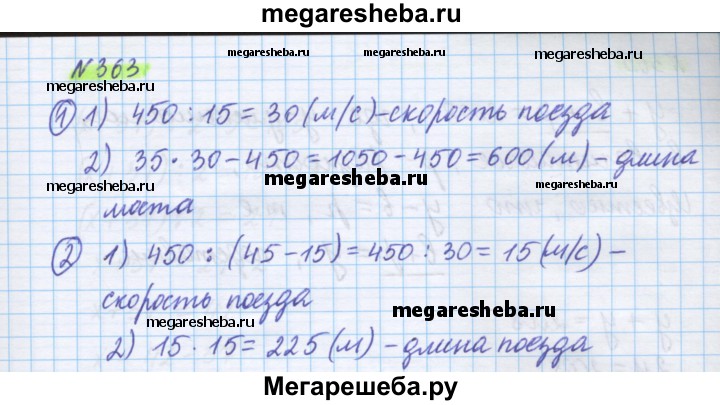 megaresheba.ru
№ 363
megaresheba.ru megaresheba.ru megaresheba.ru
megaresheba.ru
① 1) 450 : 15 = 30 (м/с) – скорость поезда
2) 35 · 30 – 450 = 1050 – 450 = 600 (м) – длина
megaresheba.ru megaresheba.ru megaresheba.ru
моста
② 1) 450 : (45 – 15) = 450 : 30 = 15 (м/с) –
скорость поезда
megaresheba.ru megaresheba.ru
2) 15 · 15 = 225 (м) – длина поезда
Мегарешеба.ру